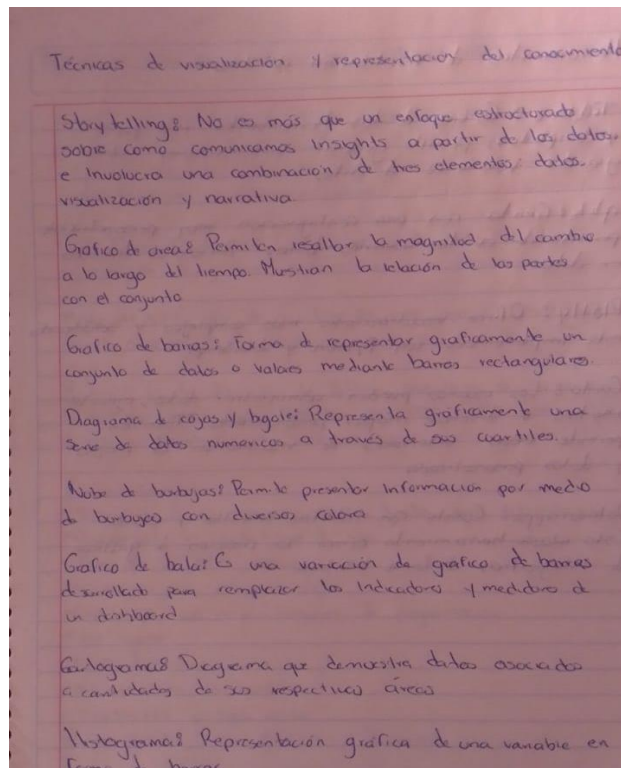 Técnicas de visualización y representación del conocimiento
Storytelling: No es más que un enfoque estructurado
sobre como comunicamos Insights a partir de los datos.
e Involucra una combinación de tres elementos: datos.
visualización y narrativa.
Grafico de area: Permiten resaltar la magnitud del cambio
a lo largo del tiempo. Muestran la relación de las partes
con el conjunto
Grafico de barras: Forma de representar graficamente un
conjunto de datos o valores mediante barras rectangulares.
Diagrama de cajas y bigote: Representa graficamente una
serie de datos numericos a través de sus cuartiles.
Nube de burbujas: Permite presentar Información por medio
de burbujas con diversos colores
Grafico de bala: Es una variación de grafico de barras
desarrollado para remplazar los Indicadores y medidores de
un dashboard
Cartogramas Diagrama que demuestra datos asociados
a cantidades de sus respectivas áreas
Histograma: Representación gráfica de una variable en
forma de barras